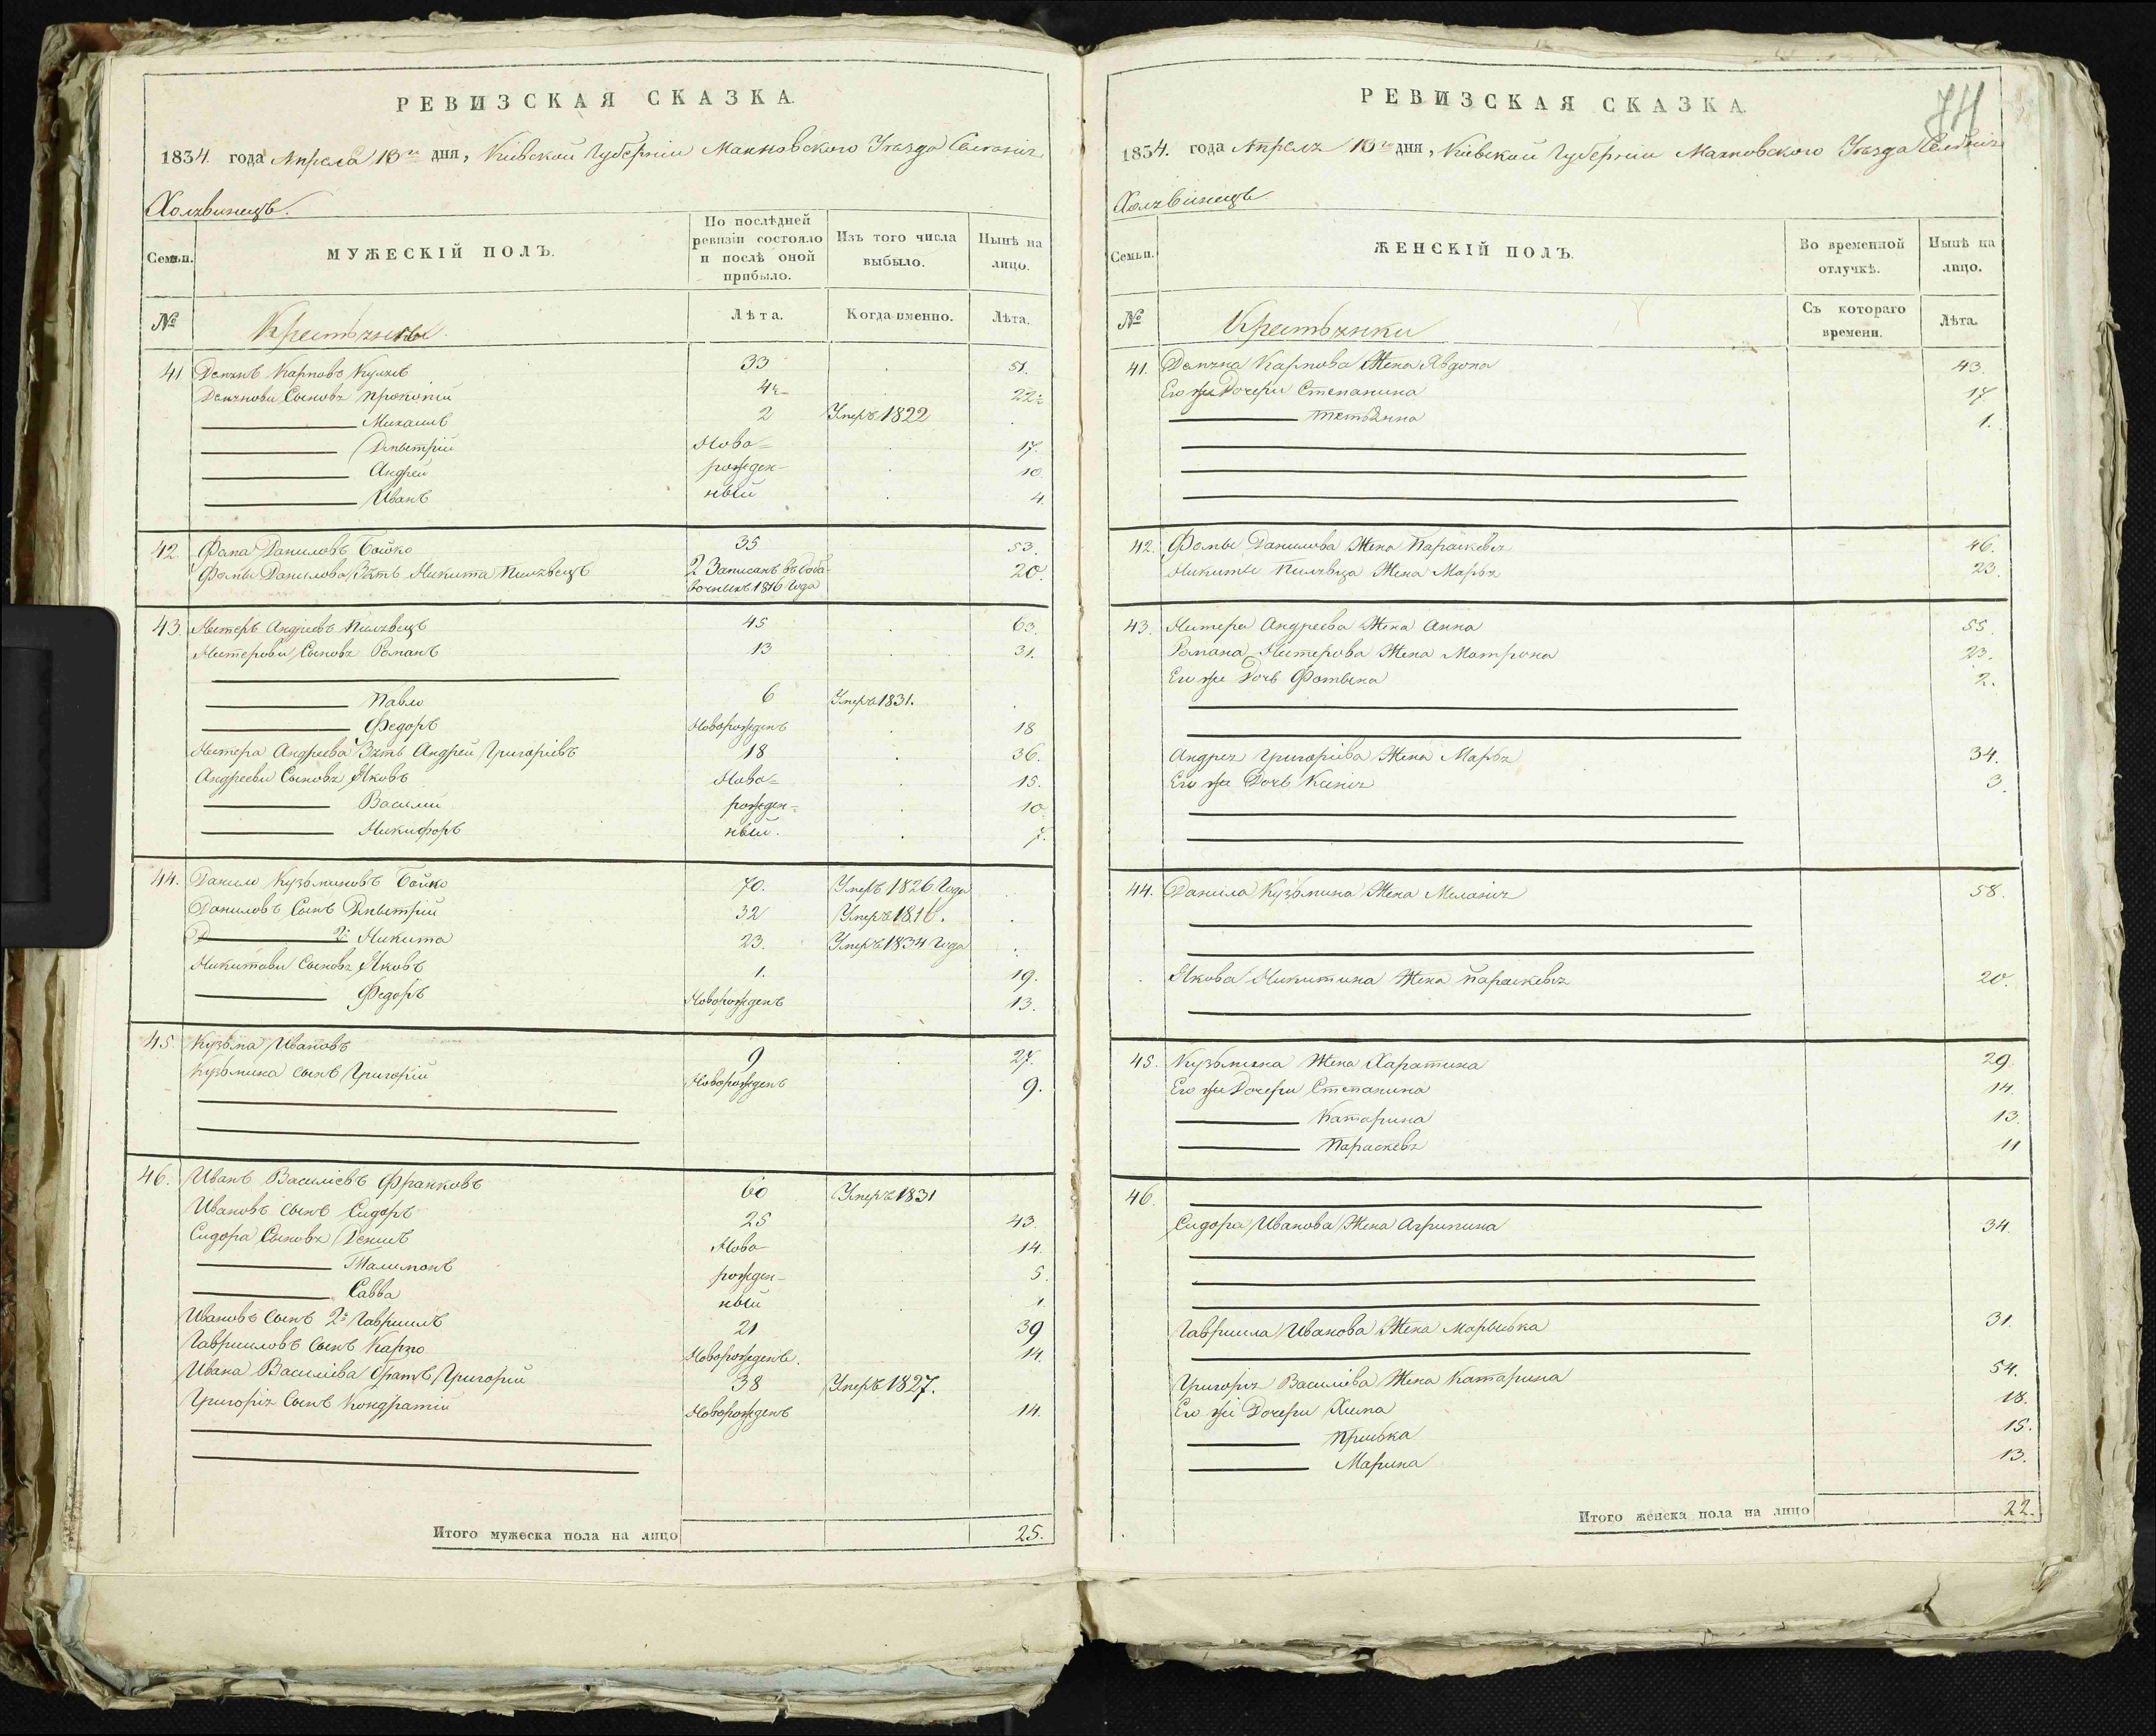 РЕВИЗСКАЯ СКАЗКА.
1834. года Апреля 13го дня, Кіевской Губерніи Махновского Уезда Селенія
Холявинецъ.
Семьи.
МУЖЕСКІЙ ПОЛЪ.
По послѣдней ревизіи состояло и послѣ оной прибыло.
Изъ того числа выбыло.
Нынѣ на лицо.
№
Крестьяне.
Лѣта.
Когда именно.
Лѣта.
41 Демянъ Карповъ 33 51.
Демянови Сыновя Прокопій 4 22
Михаилъ 2 Умеръ 1822
Дмытрій Ново= 17.
Андрей рожден- 10
Иванъ ный 4.
42. Фома Даниловъ Бойко 35 53.
Фомы Данилова Зять Микита Пилявецъ 2 Записанъ въ доба- 20.
вочныхъ 1816 Года
43. Нестеръ Андреевъ Пилявецъ 45 63.
Нестерови Сыновя Романъ 13 31.
Павло 6 Умеръ 1831.
Федоръ Новорожденъ 18
Нестера Андреева Зять Андрей Григоріевъ 18 36.
Андрееви Сыновя Яковъ Ново= 15.
Василій рожден- 10
Никифоръ ный. 7.
44. Данило Кузьминовъ Бойко 70. Умеръ 1826 Года
Даниловъ Сынъ Дмытрій 32 Умеръ 1816.
Д 2й Микита 23. Умеръ 1834 Года
Микитови Сыновя Яковъ 1. 19.
Федоръ Новорожденъ 13.
45. Кузьма Ивановъ 9 27.
Кузьмина сынъ Григорій Новорожденъ 9.
46. Иванъ Василіевъ Франковъ 60 Умеръ 1831
Ивановъ сынъ Сидоръ 25 43.
Сидора Сыновя Денисъ Ново 14.
Талимонъ рожден- 5.
Савва ный 1
Ивановъ сынъ 2й Гавриилъ 21 39
Гаврииловъ сынъ Карпо Новорожденъ. 14.
Ивана Василіева братъ Григорій 38 Умеръ 1827.
Григорія Сынъ Кондратій Новорожденъ 14.
Итого мужеска пола на лицо 25.
74
РЕВИЗСКАЯ СКАЗКА.
1834. года Апреля 13го дня, Кіевской Губерніи Махновского Уезда Селенія
Холявинецъ
Семьи.
ЖЕНСКІЙ ПОЛЪ.
Во временной отлучкѣ.
Нынѣ на лицо.
№
Крестьянки
Съ котораго времени.
Лѣта.
41. Демяна Карпова Жена Явдоха 43.
Его же Дочери Степанина 17
Тетяна 1.
42. Фомы Данилова Жена Параскевія 46.
Микиты Пилявца Жена Марья 23.
43. Нестера Андреева Жена Анна 55.
Романа Нестерова Жена Матрона 23.
Его же Дочь Фотына 2.
Андрея Григоріева Жена Марья 34.
Его же Дочь Ксенія 3.
44. Данила Кузьмина Жена Меланія 58.
Якова Микитина Жена Параскевія 20.
45. Кузьмина Жена Харатина 29
Его же Дочери Степанина 14
Катарина 13.
Параскевя 11
46.
Сидора Иванова Жена Агрипина 34.
Гавриила Иванова Жена Марьянка 31
Григорія Василіева Жена Катарина 54.
Его же Дочери Химa 18.
Приська 15.
Марина 13.
Итого женска пола на лицо 22.